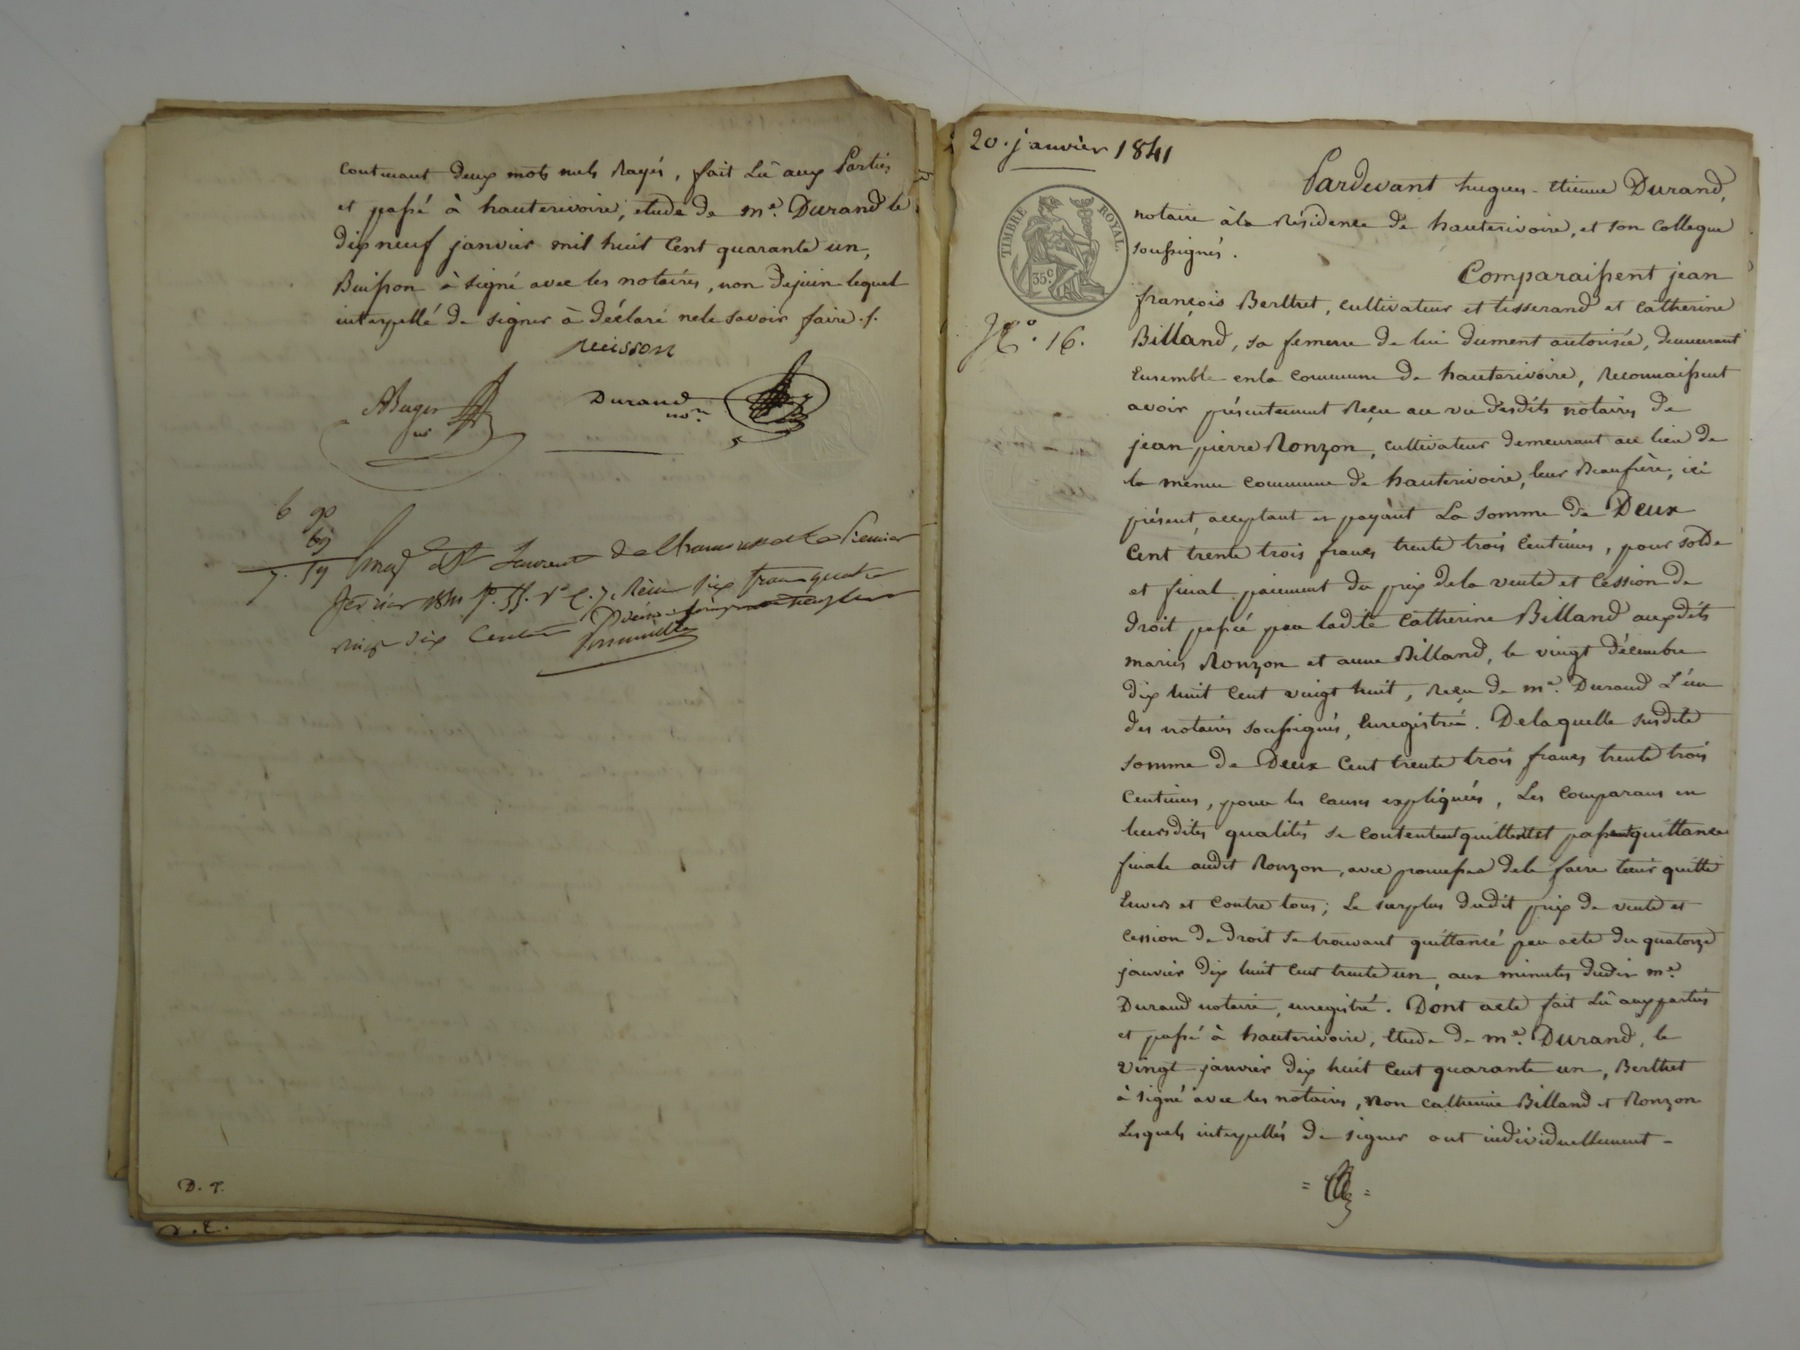 contenant deux mots nuls rayés, fait lû aux Parties
et passé à hauterivoire, etude de me. Durand le
dix neuf janvier mil huit Cent quarante un,
Buisson à signé avec les notaires, non Dejuin lequel
interpellé de signer à déclaré nele savoir faire ./.
Buisson
Durand
nore.
6 90
69
7. 59
St Laurent de Chamousset le Premier
février 1841 fo. 55. Vo C. 7. Reçu six francs quatre
vingt dix Centimes
D. T.
20. janvier 1841
Pardevant hugues-etienne Durand,
notaire àla résidence de hauterivoire, et son Collegue
soussignés.
TIMBRE ROYAL.
35c
Comparaissent jean
françois Berthet, cultivateur et tisserand et Catherine
No. 16.
Billand, sa femme de lui dument autorisée, demeurant
Ensemble enla Commune de hauterivoire, reconnaissent
avoir présentement Reçu au vu desdits notaires de
jean pierre Ronzon, cultivateur demeurant au lieu de
la même Commune de hauterivoire, leur Beaufrère, ici
présent, acceptant et payant La somme de Deux
Cent trente trois francs trente trois Centimes, pour solde
et final paiement du prix dela vente et Cession de
droit passée par ladite Catherine Billand auxdits
mariés Ronzon et anne Billand, le vingt décembre
dix huit Cent vingt huit, reçu de me. Durand L'un
des notaires soussignés, Enregistrée. Delaquelle susdite
somme de Deux Cent trente trois francs trente trois
Centimes, pour les causes expliquées, Les Comparans en
leursdites qualités se contentent quittent et passent quittance
finale audit Ronzon, avec promesse dele faire tenir quitte
Envers et Contre tous; Le surplus dudit prix de vente et
Cession de droit se trouvant quittancé par acte du quatorze
janvier dix huit Cent trente un, aux minutes dudit me.
Durand notaire, enregistré. Dont acte fait Lû aux parties
et passé à hauterivoire, Etude de me. Durand, le
vingt janvier dix huit Cent quarante un, Berthet
à signé avec les notaires, non Catherine Billand et Ronzon
Lesquels interpellés de signer ont individuellement -